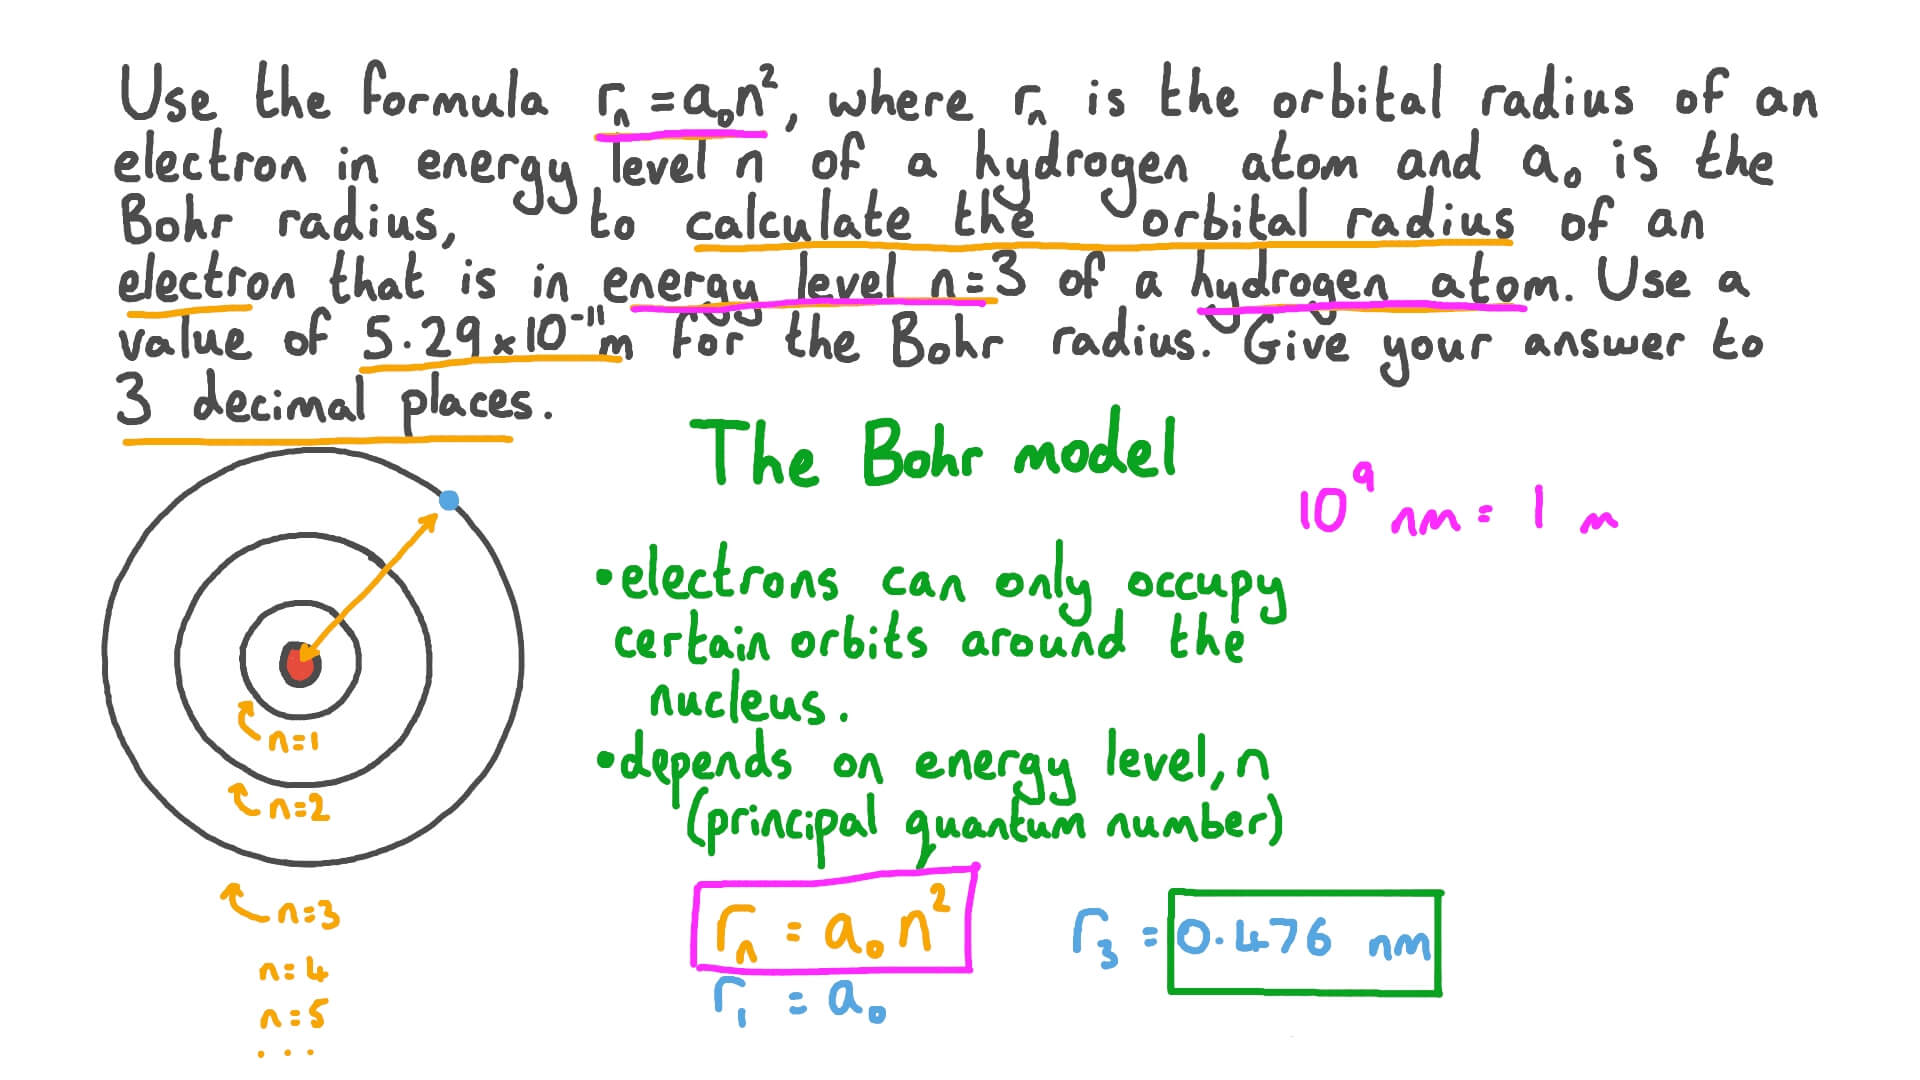 Use the formula rₙ = a₀n², where rₙ is the orbital radius of an
electron in energy level n of a hydrogen atom and a₀ is the
Bohr radius, to calculate the orbital radius of an
electron that is in energy level n=3 of a hydrogen atom. Use a
value of 5.29×10⁻¹¹m for the Bohr radius. Give your answer to
3 decimal places.
The Bohr model
10⁹ nm = 1 m
•electrons can only occupy
certain orbits around the
nucleus.
•depends on energy level, n
(principal quantum number)
n=1
n=2
n=3
n=4
n=5
...
rₙ = a₀n²
r₁ = a₀
r₃ = 0.476 nm